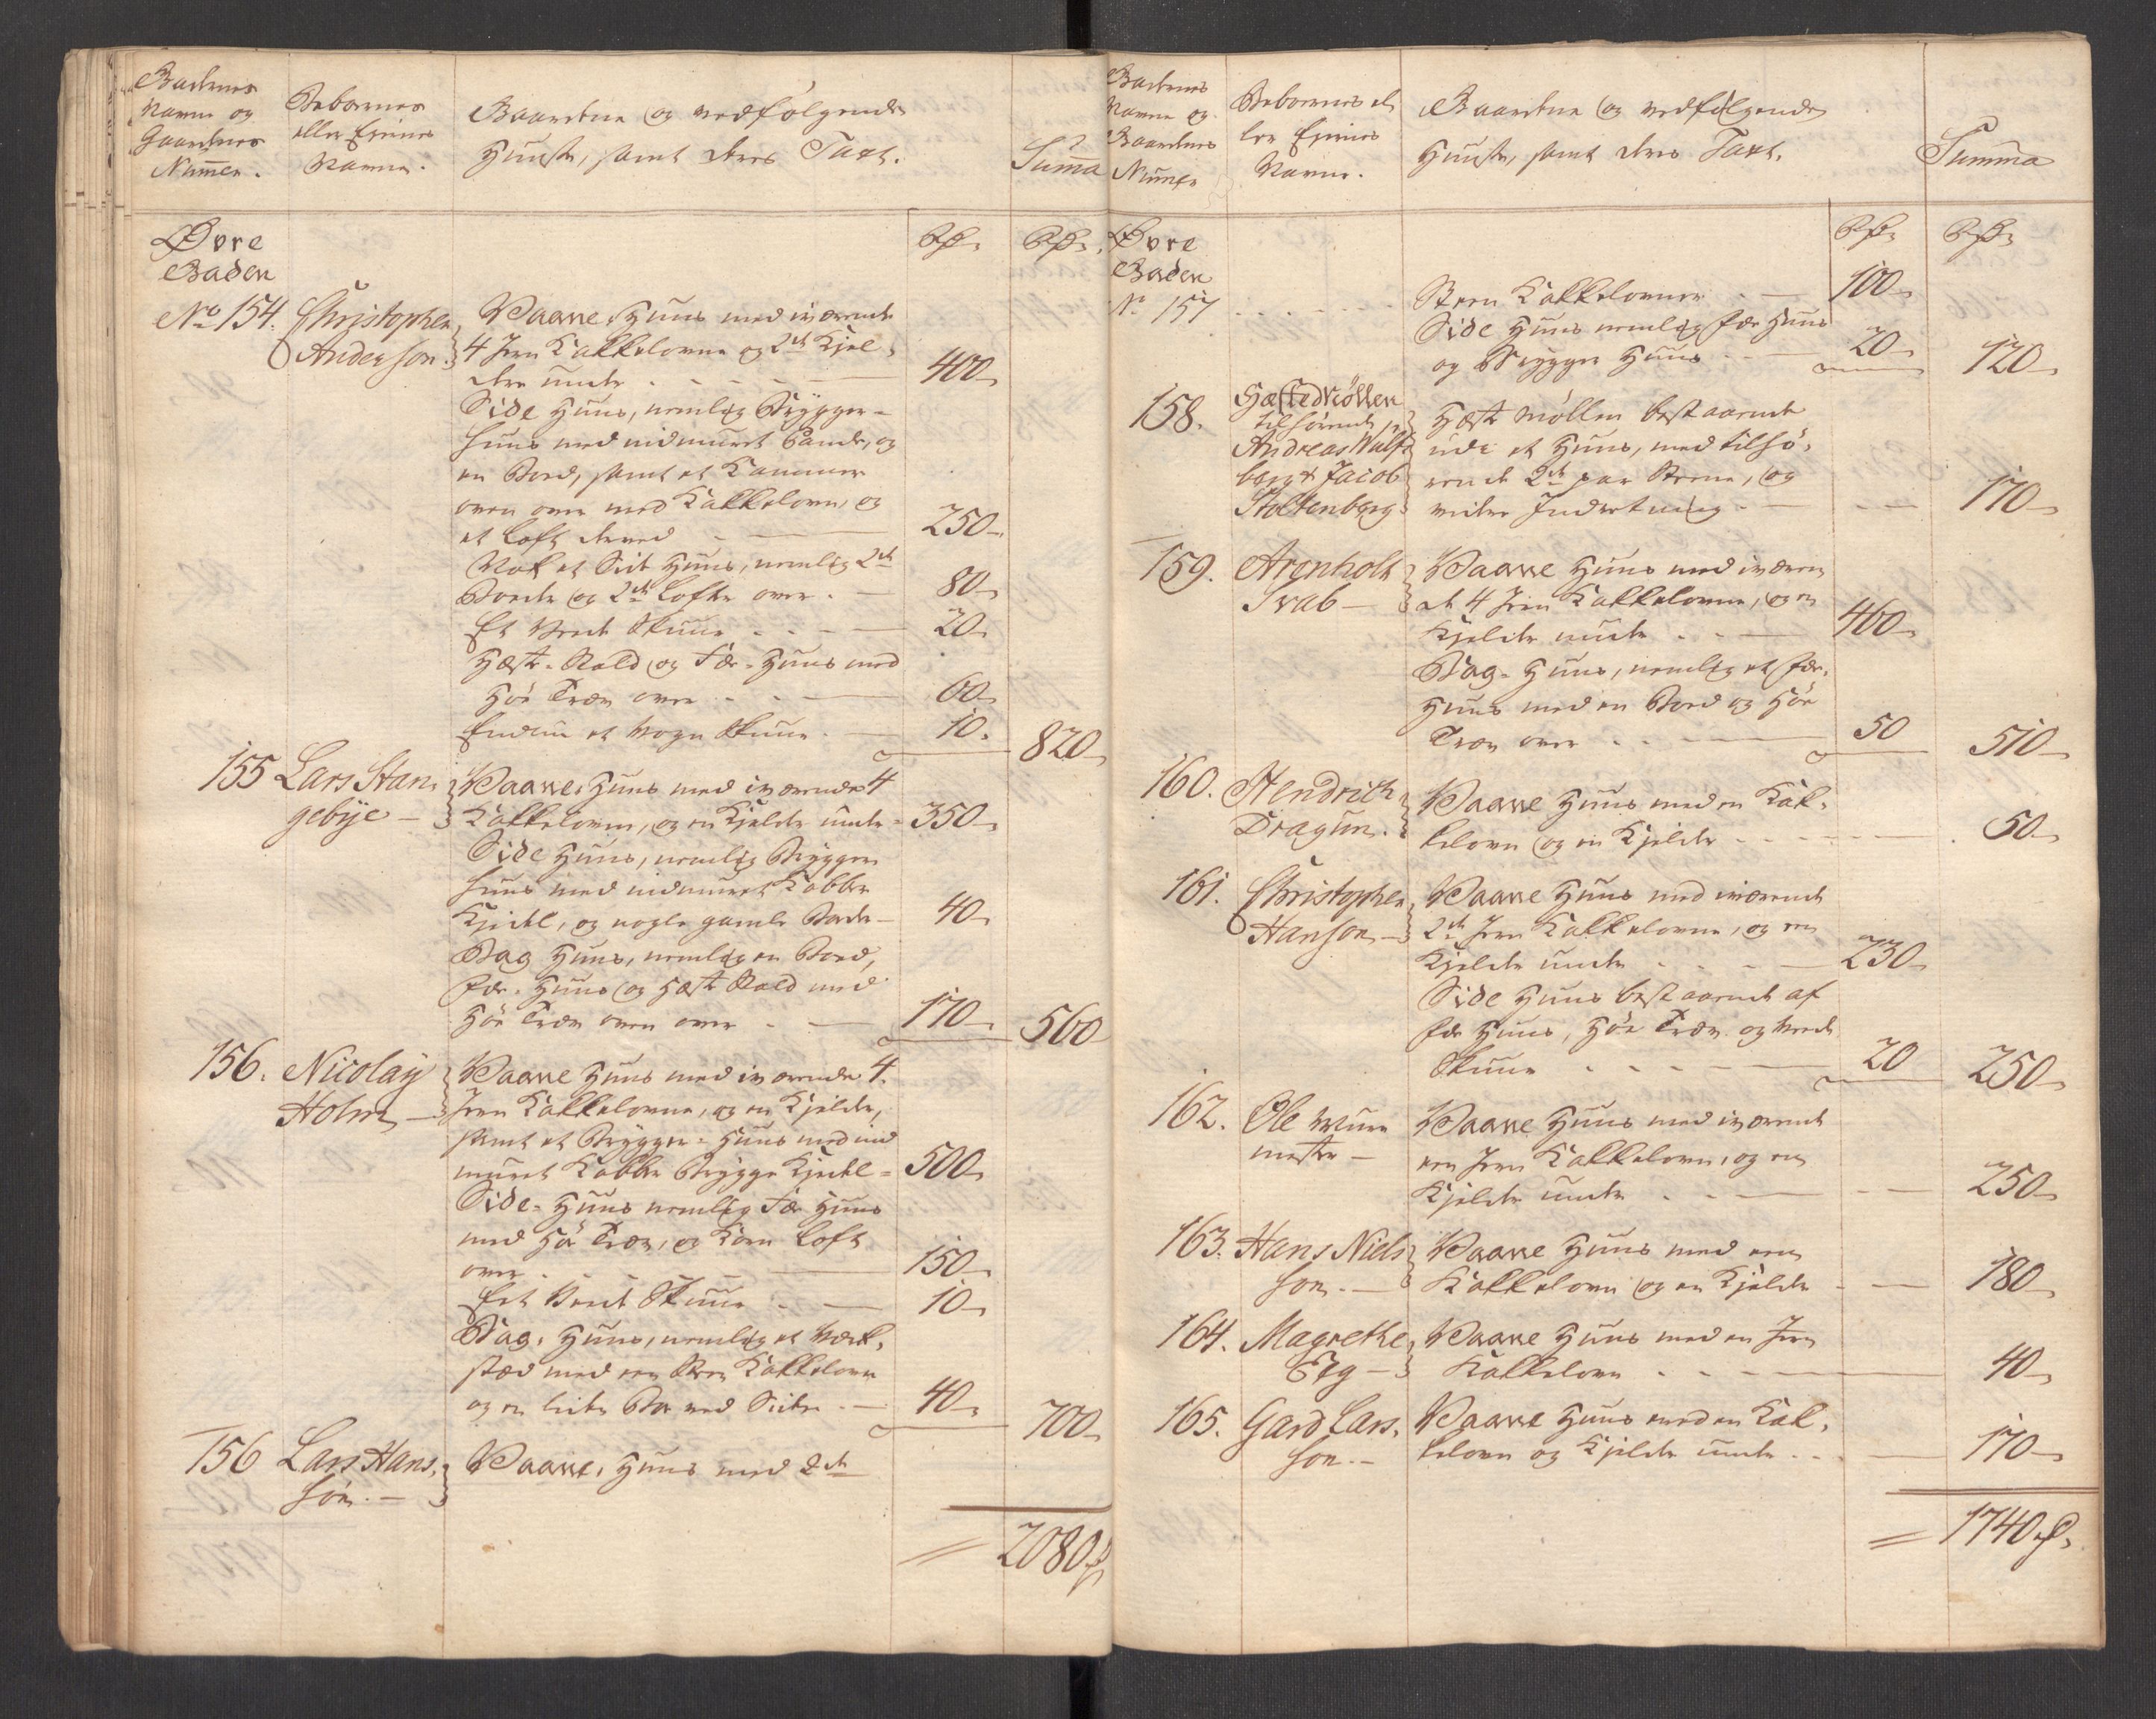 Gadernes
Navne og
Gaardenes
Numer.
Beboernes
eller Ejernes
Navne.
Gaardene og vedfølgende
Huuse, samt deres Taxt.
Summa
Øvre
Gaden
Rdr.
Rdr.
No 154.
Christopher
Anderson.
Vaane-Huus med iværende
4 Jern Kakkelovne og 2de Kjel-
dre under
400
Side Huus, nemlig Brygger-
huus med indmuuret Pande, og
en Boed, samt et Kammer
oven over med Kakkelovn, og
et Loft derved
250
Nok et Side Huus, nemlig 2de
Boede og 2de Lofte over.
80
Et Vede Skuur
20
Hæste-Stald og Fæe-Huus med
Høe Trøe over
60
Endnu et Vogn Skuur
10.
820
155
Lars Stan-
gebye
Vaane-Huus med iværende 4
Kakkelovne, og en Kjelder under
350
Side Huus, nemlig Brygger
huus med indmuuret Kobber
Kjedel, og nogle gamle Boder
40
Bag Huus, nemlig en Boed,
Fæe-Huus og Hæste Stald med
Høe Trøe oven over
170
560
156.
Nicolay
Holm
Vaane Huus med iværende 4.
Jern Kakkelovne, og en Kjelder,
samt et Brygger-Huus med ind
muuret Kobber Brygge Kjedel
500
Side-Huus nemlig Fæe Huus
med Høe Trøe, og Korn Loft
over
150
Eet Vede Skuur
10
Bag-Huus, nemlig et Værk-
sted med een Steen Kakkelovn
og en liden Boe ved Siden
40
700
156
Lars Hans-
søn.
Vaane-Huus med 2de
2080
Gadernes
Navne og
Gaardenes
Numer
Beboernes el
ler Ejernes
Navne.
Gaardene og vedfølgende
Huuse, samt deres Taxt.
Summa
Øvre
Gaden
Rdr.
Rdr.
No 157
Steen Kakkelovner
100
Side Huus nemlig Fæe Huus
og Brygger Huus
20
120
158.
Hæstemöllen
tilhørende
Andreas Wulfs
berg & Jacob
Stoltenberg
Hæste Möllen bestaaende
udi et Huus, med tilhø-
rende 2de par Steene, og
videre Indretning
170
159.
Arenholt
Svab
Vaane Huus med iværen
de 4 Jern Kakkelovne, og en
Kjelder under
460
Bag-Huus, nemlig et Fæe-
Huus med en Boed og Høe
Trøe over
50
510
160.
Hendrich
Dragun.
Vaane Huus med en Kak-
kelovn og en Kjelder
50
161.
Christopher
Hanson
Vaane Huus med iværende
2de Jern Kakkelovne, og en
Kjelder under
230
Side Huus bestaaende af
Fæe Huus, Høe Trøe og Vede
Skuur
20
250
162.
Ole Muur
mester
Vaane Huus med iværende
een Jern Kakkelovn, og en
Kjelder under
250
163.
Hans Niels
son.
Vaane Huus med een
Kakkelovn og en Kjelder
180
164.
Magrethe
Eeg
Vaane Huus med en Jern
Kakkelovn
40
165.
Gard Lars-
son.
Vaane Huus med en Kak-
kelovn og Kjelder under
170
1740